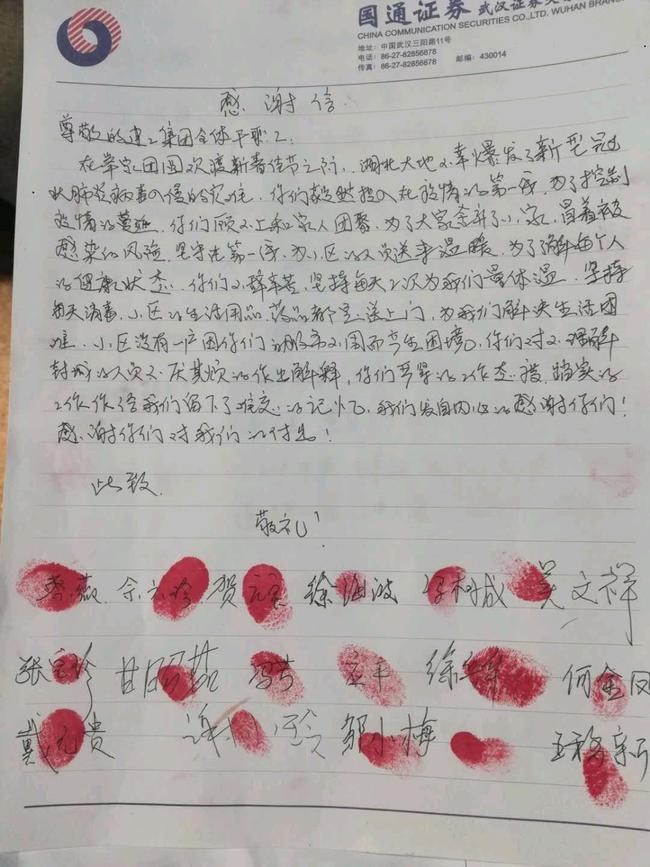 国通证券 武汉证券
CHINA COMMUNICATION SECURITIES CO.,LTD. WUHAN BRAN
地址：中国武汉三阳路11号
电话：86-27-82856878
传真：86-27-82856878 邮编：430014
感谢信
尊敬的建工集团全体干职工：
在举家团圆欢渡新春佳节之际，湖北大地不幸爆发了新型冠
状肺炎病毒入侵的灾难，你们毅然投入在疫情的第一线，为了控制
疫情的蔓延，你们顾不上和家人团聚，为了大家舍弃了小家，冒着被
感染的风险，坚守在第一线，为小区的人员送来温暖，为了了解每个人
的健康状态，你们不辞辛苦，坚持每天2次为我们量体温，坚持
每天消毒，小区的生活用品，药品都是送上门，为我们解决生活困
难，小区没有一户因你们的服务不周而产生困境。你们对不理解
封城的人员不厌其烦的作出解释，你们严谨的工作态度，踏实的
工作作给我们留下了难忘的记忆，我们发自内心的感谢你们！
感谢你们对我们的付出！
此致
敬礼！
燕 余 珍 贺 徐海波 成 吴文祥
张 珍 甘 茹 冯 平 徐 何金凤
戴 贵 谢 玲 邹小梅 王 新